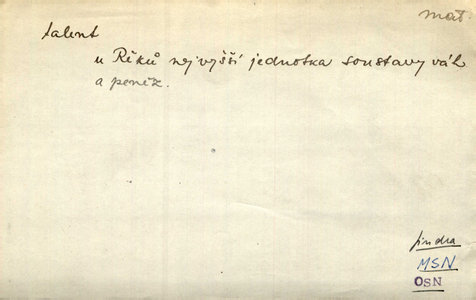 mat.
talent
u Řeků nejvyšší jednotka soustavy váh
a peněz.
Jindra
MSN
OSN